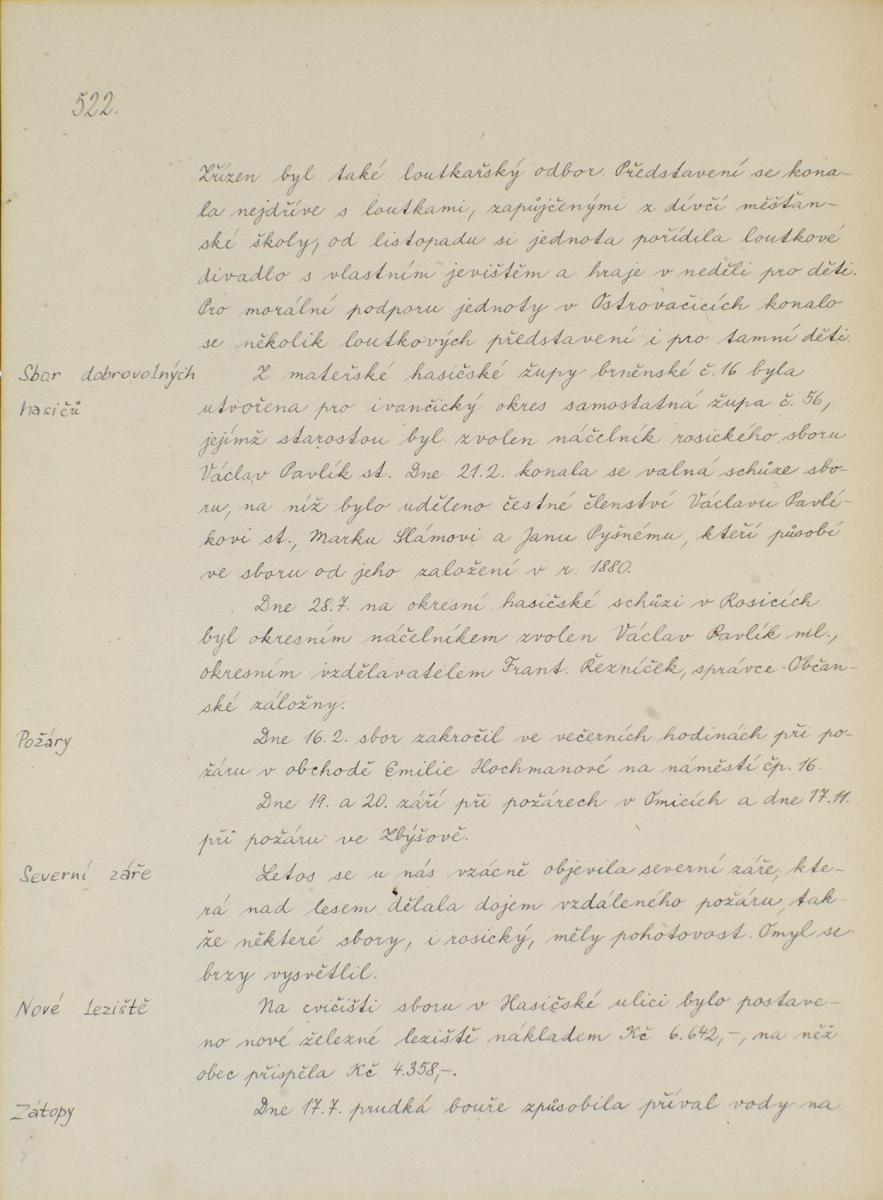 522.
Zřízen byl také loutkařský odbor. Představení se kona-
la nejdříve s loutkami, zapůjčenými z dívčí měšťan-
ské školy, od listopadu si jednota pořídila loutkové
divadlo s vlastním jevištěm a hraje v neděli pro děti.
Pro morální podporu jednoty v Ostrovačicích konalo
se několik loutkových představení i pro tamní děti.
Sbor dobrovolných
hasičů
Z mateřské hasičské župy brněnské č. 16 byla
utvořena pro ivančický okres samostatná župa č. 56,
jejímž starostou byl zvolen náčelník rosického sboru
Václav Pavlík st. Dne 21.2. konala se valná schůze sbo-
ru, na níž bylo uděleno čestné členství Václavu Pavlí-
kovi st., Marku Slámovi a Janu Pyšnému, kteří působí
ve sboru od jeho založení v r. 1880.
Dne 28.7. na okresní hasičské schůzi v Rosicích
byl okresním náčelníkem zvolen Václav Pavlík ml.,
okresním vzdělavatelem Frant. Řezníček, správce Občan-
ské záložny.
Požáry
Dne 16.2. sbor zakročil ve večerních hodinách při po-
žáru v obchodě Emilie Hochmanové na náměstí čp. 16.
Dne 19. a 20. září při požárech v Omicích a dne 17.11.
při požáru ve Zbýšově.
Severní záře
Letos se u nás vzácně objevila severní záře, kte-
rá nad lesem dělala dojem vzdáleného požáru, tak-
že některé sbory, i rosický, měly pohotovost. Omyl se
brzy vysvětlil.
Nové leziště
Na cvičišti sboru v Hasičské ulici bylo postave-
no nové železné leziště nákladem Kč 6.642,-, na něž
obec přispěla Kč 4.358,-.
Zátopy
Dne 17.7. prudká bouře způsobila příval vody na